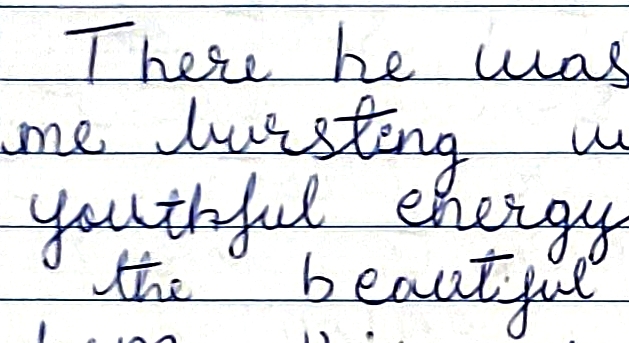 There he was
me bursting
youthful energy
the beautiful